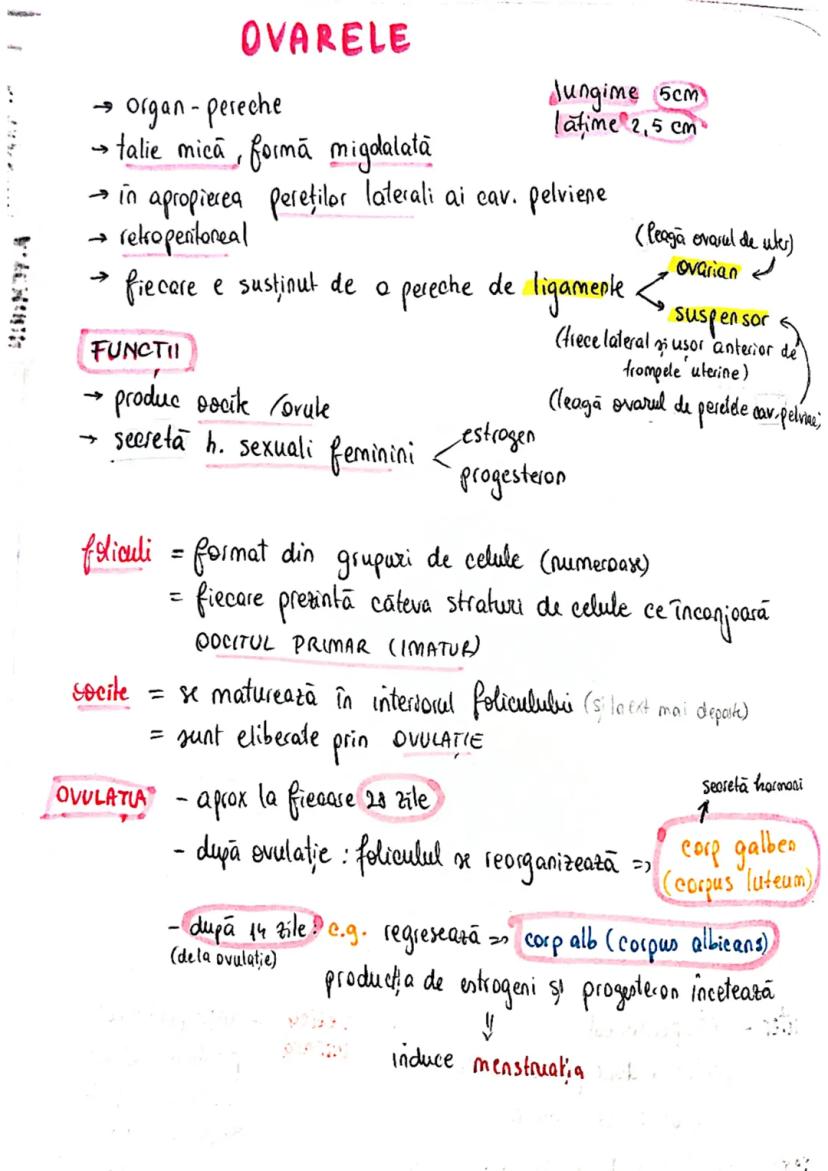 OVARELE
→ organ - pereche
lungime 5cm
lățime 2,5 cm
→ talie mică, formă migdalată
→ în apropierea pereților laterali ai cav. pelviene
→ retroperitoneal
(leagă ovarul de uter)
→ fiecare e susținut de o pereche de ligamente
ovarian
suspensor
(trece lateral și ușor anterior de
trompele uterine)
(leagă ovarul de peretele cav. pelviene)
FUNCȚII
→ produc oocite /ovule
→ secretă h. sexuali feminini
estrogen
progesteron
foliculi = format din grupuri de celule (numeroase)
= fiecare prezintă câteva straturi de celule ce înconjoară
OOCITUL PRIMAR (IMATUR)
oocite = se maturează în interiorul foliculului (și la ext mai departe)
= sunt eliberate prin OVULAȚIE
OVULAȚIA - aprox la fiecare 28 zile
secretă hormoni
- după ovulație : foliculul se reorganizează => corp galben
(corpus luteum)
- după 14 zile: c.g. regresează => corp alb (corpus albicans)
(de la ovulație)
producția de estrogeni și progesteron încetează
⇓
induce menstruația